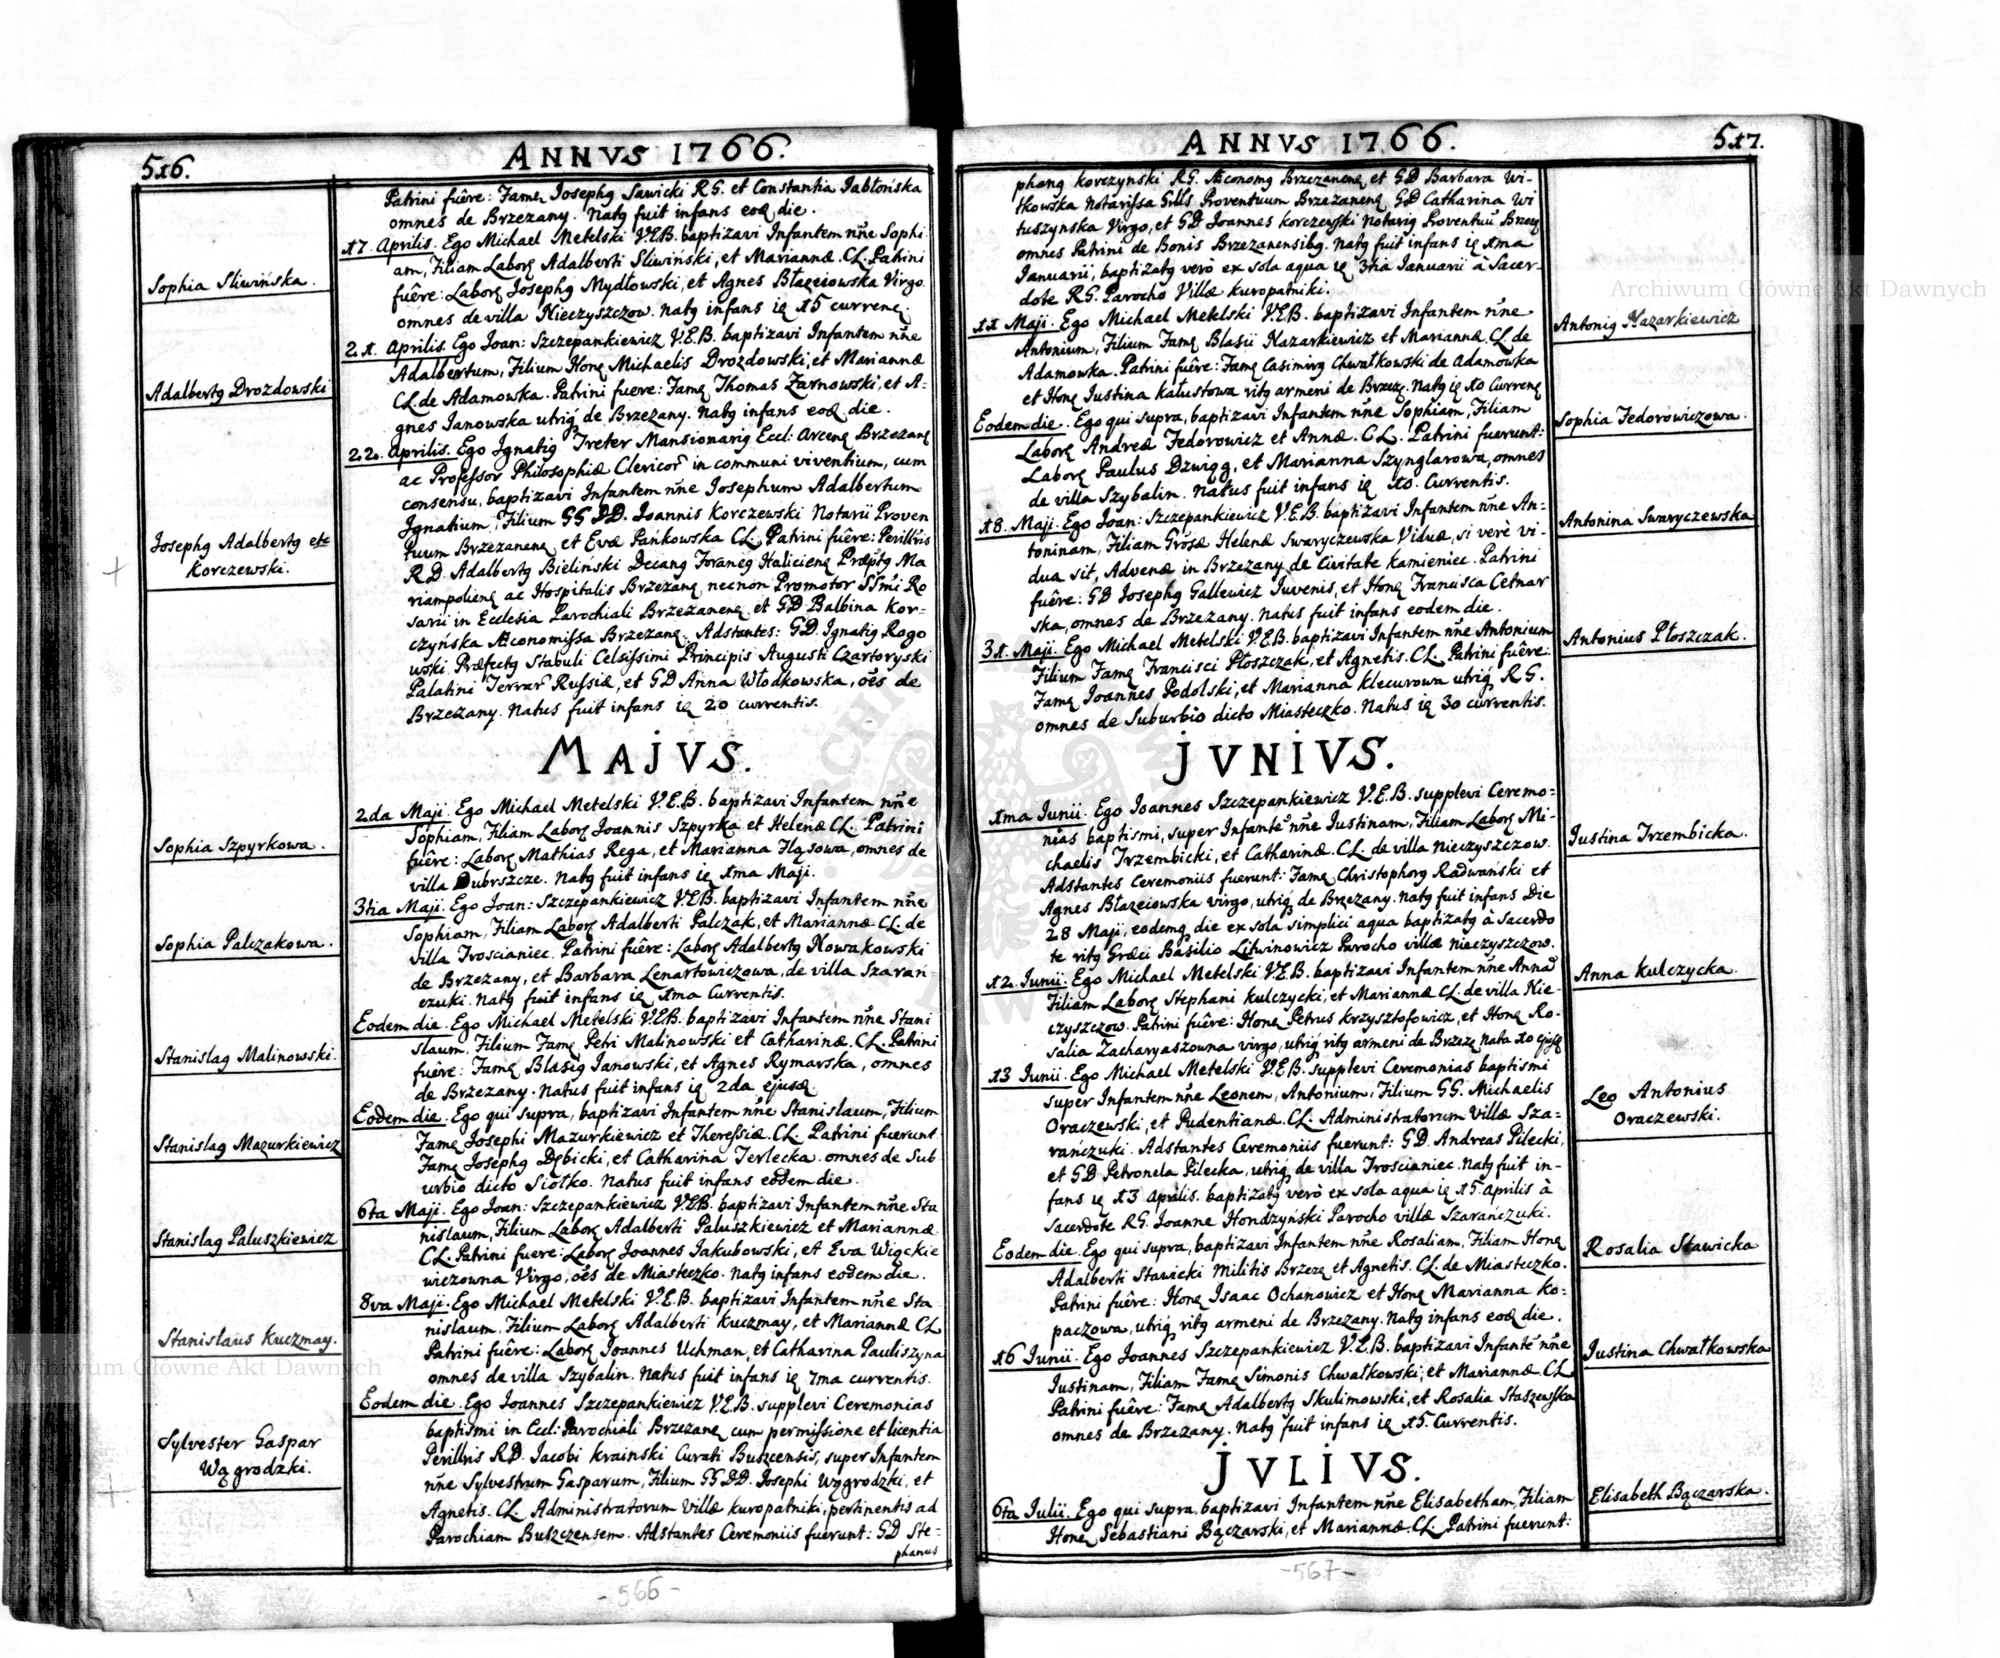 516.
ANNVS 1766.
Patrini fuêre: Famꝫ Josephꝫ Sawicki RG. et Constantia Jabłońska
omnes de Brzezany. Natꝫ fuit infans eoꝺ die.
Sophia Sliwińska.
17. Aprilis. Ego Michael Metelski V.E.B. baptizavi Infantem nn̄e Sophi
am, Filiam Laborꝫ Adalberti Sliwinski, et Mariannæ CL. Patrini
fuêre: Laborꝫ Josephꝫ Mydłowski, et Agnes Błazeiowska Virgo.
omnes de villa Nieczyszczow. natꝫ infans ię 15 currenꝫ
Adalbertꝫ Drozdowski
21. Aprilis. Ego Joan: Szczepankiewicz V.E.B. baptizavi Infantem nn̄e
Adalbertum, Filium Honꝫ Michaelis Drozdowski, et Mariannæ
CL. de Adamowka. Patrini fuere: Famꝫ Thomas Zarnowski, et A-
gnes Janowska utriꝗ de Brzezany. Natꝫ infans eoꝺ die.
Josephꝫ Adalbertꝫ etc
Korczewski.
22. Aprilis. Ego Ignatiꝫ Treter Mansionariꝫ Eccl: Arcenꝫ Brzezanꝫ
ac Professor Philosophiæ Clericor̄ in communi viventium, cum
consensu, baptizavi Infantem nn̄e Josephum Adalbertum
Ignatium, Filium GG DD. Joannis Korczewski Notarii Proven
tuum Brzezanenꝫ et Evæ Pankowska CL. Patrini fuêre: Perillris
R.D. Adalbertꝫ Bielinski Decanꝫ Foraneꝫ Halicienꝫ Præptꝫ Ma
riampolienꝫ ac Hospitalis Brzezanꝫ necnon Promotor SSmi Ro
sarii in Ecclesia Parochiali Brzezanenꝫ et GD Balbina Kor-
czyńska Æconomissa Brzezanꝫ. Adstantes: GD. Ignatiꝫ Rogo
wski Præfectꝫ Stabuli Celsissimi Principis Augusti Czartoryski
Palatini Terrar̄ Russiæ, et GD Anna Włodkowska, oēs de
Brzezany. Natus fuit infans ię 20 currentis.
MAJVS.
Sophia Szpyrkowa.
2da Maji. Ego Michael Metelski V.E.B. baptizavi Infantem nn̄e
Sophiam, Filiam Laborꝫ Joannis Szpyrka et Helenæ CL. Patrini
fuêre: Laborꝫ Mathias Rega, et Marianna Fląsowa, omnes de
villa Dubrszcze. Natꝫ fuit infans ię 1ma Maji.
Sophia Palczakowa.
3tia Maji. Ego Joan: Szczepankiewicz V.E.B. baptizavi Infantem nn̄e
Sophiam, Filiam Laborꝫ Adalberti Palczak, et Mariannæ CL. de
villa Troscianiec. Patrini fuêre: Laborꝫ Adalbertꝫ Nowakowski
de Brzezany, et Barbara Lenartowiczowa, de villa Szarań-
czuki. natꝫ fuit infans ię 1ma Currentis.
Stanislaꝫ Malinowski.
Eodem die. Ego Michael Metelski V.E.B. baptizavi Infantem nn̄e Stani
slaum, Filium Famꝫ Petri Malinowski et Catharinæ. CL. Patrini
fuêre: Famꝫ Blasiꝫ Janowski, et Agnes Rymarska, omnes
de Brzezany. Natus fuit infans ię 2da ejusꝺ.
Stanislaꝫ Mazurkiewicz
Eodem die. Ego qui supra, baptizavi Infantem nn̄e Stanislaum, Filium
Famꝫ Josephi Mazurkiewicz et Theressiæ. CL. Patrini fuerunt
Famꝫ Josephꝫ Dębicki, et Catharina Terlecka. omnes de Sub-
urbio dicto Siołko. Natus fuit infans eodem die.
Stanislaꝫ Paluszkiewicz
6ta Maji. Ego Joan: Szczepankiewicz V.E.B. baptizavi Infantem nn̄e Sta
nislaum, Filium Laborꝫ Adalberti Paluszkiewicz et Mariannæ
CL. Patrini fuere: Laborꝫ Joannes Jakubowski, et Eva Wiąckie
wiczowna Virgo, oēs de Miasteczko. natꝫ infans eodem die.
Stanislaus Kuczmay.
8va Maji. Ego Michael Metelski V.E.B. baptizavi Infantem nn̄e Sta
nislaum, Filium Laborꝫ Adalberti Kuczmay, et Mariannæ CL
Patrini fuêre: Laborꝫ Joannes Uchman, et Catharina Pauliszyna
omnes de villa Szybalin. Natus fuit infans ię 7ma currentis.
Sylvester Gaspar
Wągrodzki.
Eodem die. Ego Joannes Szczepankiewicz V.E.B. supplevi Ceremonias
baptismi in Eccl: Parochiali Brzezanꝫ cum permissione et licentia
Perillris R.D. Jacobi Krainski Curati Buszcensis, super Infantem
nn̄e Sylvestrum Gasparum, Filium GG DD. Josephi Wągrodzki, et
Agnetis. CL. Administratorum villæ Kuropatniki, pertinentis ad
Parochiam Buszczensem. Adstantes Ceremoniis fuerunt: GD Ste-
phanus
-566-
ANNVS 1766.
517.
phanꝫ Korczynski RG. Æconomꝫ Brzezanenꝫ et GD Barbara Wi-
tkowska Notarissa Grlls Proventuum Brzezanenꝫ GD Catharina Wi
tuszynska Virgo, et GD Joannes Korczewski Notariꝫ Proventuū Brzezꝫ
omnes Patrini de Bonis Brzezanensibꝫ. Natꝫ fuit infans ię 1ma
Januarii, baptizatꝫ verò ex sola aqua ię 3tia Januarii à Sacer-
dote R.G. Parocho Villæ Kuropatniki.
Antoniꝫ Nazarkiewicz
11 Maji. Ego Michael Metelski V.E.B. baptizavi Infantem nn̄e
Antonium, Filium Famꝫ Blasii Nazarkiewicz et Mariannæ CL. de
Adamowka. Patrini fuêre: Famꝫ Casimirꝫ Chwałkowski de Adamowka
et Honꝫ Justina Kałustowa ritꝫ armeni de Brzezꝫ. Natꝫ ię 10 Currenꝫ
Sophia Fedorowiczowa.
Eodem die. Ego qui supra, baptizavi Infantem nn̄e Sophiam, Filiam
Laborꝫ Andreæ Fedorowicz et Annæ. CL. Patrini fuerunt:
Laborꝫ Paulus Dzwigꝫ, et Marianna Szynglarowa, omnes
de villa Szybalin. Natus fuit infans ię 10. Currentis.
Antonina Swaryczewska
18. Maji. Ego Joan: Szczepankiewicz V.E.B. baptizavi Infantem nn̄e An-
toninam, Filiam Grōsæ Helenæ Swaryczewska Viduæ, si verè vi-
dua sit, Advenæ in Brzezany de Civitate Kamieniec. Patrini
fuêre: GD Josephꝫ Gallewicz Juvenis, et Honꝫ Francisca Cetnar
ska, omnes de Brzezany. Natus fuit infans eodem die.
Antonius Płoszczak.
31. Maji. Ego Michael Metelski V.E.B. baptizavi Infantem nn̄e Antonium
Filium Famꝫ Francisci Płoszczak, et Agnetis. CL. Patrini fuêre:
Famꝫ Joannes Podolski, et Marianna Klecurowa utriꝗ R G.
omnes de Suburbio dicto Miasteczko. Natus ię 30 currentis.
JVNIVS.
Justina Trzembicka.
1ma Junii. Ego Joannes Szczepankiewicz V.E.B. supplevi Ceremo-
nias baptismi, super Infantē nn̄e Justinam, Filiam Laborꝫ Mi-
chaelis Trzembicki, et Catharinæ. CL. de villa Nieczyszczow.
Adstantes Ceremoniis fuerunt: Famꝫ Christophorꝫ Radwański et
Agnes Błazeiowska virgo, utriꝗ de Brzezany. Natꝫ fuit infans Die
28 Maji, eodemꝗ die ex sola simplici aqua baptizatꝫ à Sacerdo
te ritꝫ Græci Basilio Litwinowicz Parocho villæ Nieczyszczow.
Anna Kulczycka.
12. Junii. Ego Michael Metelski V.E.B. baptizavi Infantem nn̄e Annā
Filiam Laborꝫ Stephani Kulczycki, et Mariannæ CL. de villa Nie-
czyszczow. Patrini fuêre: Honꝫ Petrus Krzysztofowicz, et Honꝫ Ro-
salia Zacharyaszowna virgo, utriꝗ ritꝫ armeni de Brzezꝫ Nata 10 ejusꝺ
Leo Antonius
Oraczewski.
13 Junii. Ego Michael Metelski V.E.B. supplevi Ceremonias baptismi
super Infantem nn̄e Leonem, Antonium, Filium GG. Michaelis
Oraczewski, et Pudentianæ. CL. Administratorum Villæ Sza-
rańczuki. Adstantes Ceremoniis fuerunt: GD. Andreas Pilecki,
et GD Petronela Pilecka, utriꝗ de villa Troscianiec. Natꝫ fuit in-
fans ię 13 Aprilis. baptizatꝫ verò ex sola aqua ię 15 Aprilis à
Sacerdote RG. Joanne Hondzyński Parocho villæ Szarańczuki.
Rosalia Stawicka
Eodem die. Ego qui supra, baptizavi Infantem nn̄e Rosaliam, Filiam Honꝫ
Adalberti Stawicki Militis Brzezꝫ et Agnetis. CL. de Miasteczko.
Patrini fuêre: Honꝫ Isaac Ochanowicz et Honꝫ Marianna Ko-
paczowa, utriꝗ ritꝫ armeni de Brzezany. Natꝫ infans eoꝺ die.
Justina Chwałkowska
16 Junii. Ego Joannes Szczepankiewicz V.E.B. baptizavi Infantē nn̄e
Justinam, Filiam Famꝫ Simonis Chwałkowski, et Mariannæ. CL.
Patrini fuêre: Famꝫ Adalbertꝫ Skulimowski, et Rosalia Staszewska
omnes de Brzezany. Natꝫ fuit infans ię 15. Currentis.
JVLIVS.
Elisabeth Bączarska.
6ta Julii. Ego qui supra, baptizavi Infantem nn̄e Elisabetham, Filiam
Honꝫ Sebastiani Bączarski, et Mariannæ. CL. Patrini fuerunt:
-567-
Archiwum Główne Akt Dawnych
Archiwum Główne Akt Dawnych